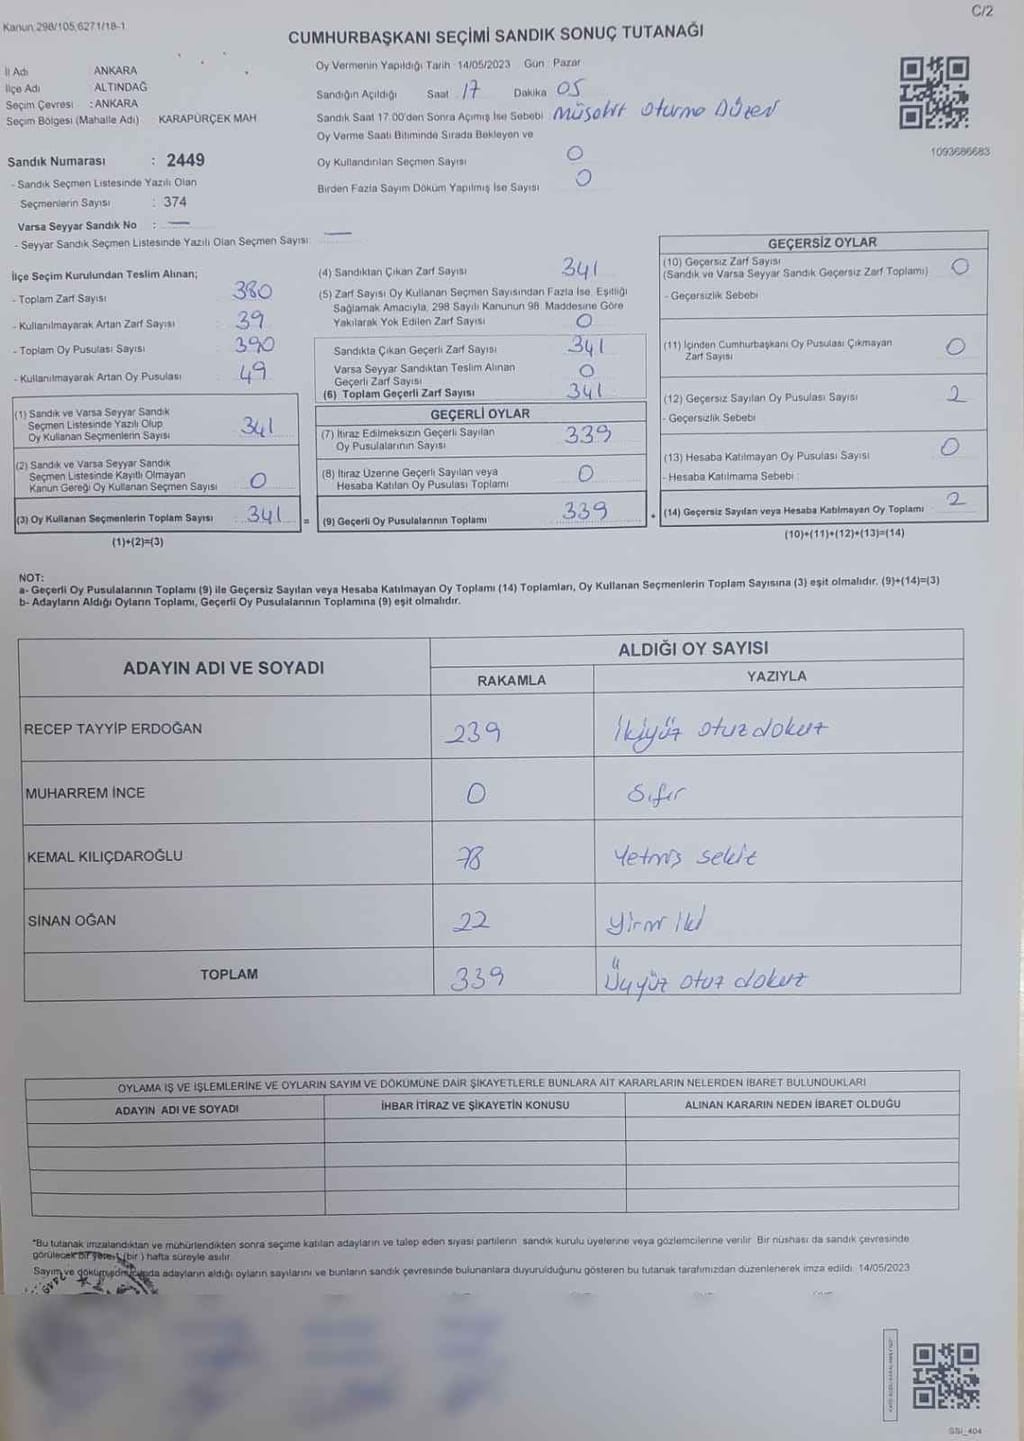 Kanun 298/105,6271/18-1
C/2
CUMHURBAŞKANI SEÇİMİ SANDIK SONUÇ TUTANAĞI
İl Adı ANKARA
İlçe Adı ALTINDAĞ
Seçim Çevresi : ANKARA
Seçim Bölgesi (Mahalle Adı) KARAPÜRÇEK MAH
Sandık Numarası : 2449
- Sandık Seçmen Listesinde Yazılı Olan
Seçmenlerin Sayısı : 374
Varsa Seyyar Sandık No : —
- Seyyar Sandık Seçmen Listesinde Yazılı Olan Seçmen Sayısı: —
Oy Vermenin Yapıldığı Tarih 14/05/2023 Gün Pazar
Sandığın Açıldığı Saat 17 Dakika 05
Sandık Saat 17.00'den Sonra Açılmış İse Sebebi Müşahit Oturma Düzen
Oy Verme Saati Bitiminde Sırada Bekleyen ve
Oy Kullandırılan Seçmen Sayısı 0
Birden Fazla Sayım Döküm Yapılmış İse Sayısı 0
1093686683
İlçe Seçim Kurulundan Teslim Alınan;
- Toplam Zarf Sayısı 380
- Kullanılmayarak Artan Zarf Sayısı 39
- Toplam Oy Pusulası Sayısı 390
- Kullanılmayarak Artan Oy Pusulası 49
(1) Sandık ve Varsa Seyyar Sandık
Seçmen Listesinde Yazılı Olup
Oy Kullanan Seçmenlerin Sayısı 341
(2) Sandık ve Varsa Seyyar Sandık
Seçmen Listesinde Kayıtlı Olmayan
Kanun Gereği Oy Kullanan Seçmen Sayısı 0
(3) Oy Kullanan Seçmenlerin Toplam Sayısı 341 =
(1)+(2)=(3)
(4) Sandıktan Çıkan Zarf Sayısı 341
(5) Zarf Sayısı Oy Kullanan Seçmen Sayısından Fazla İse, Eşitliği
Sağlamak Amacıyla, 298 Sayılı Kanunun 98. Maddesine Göre
Yakılarak Yok Edilen Zarf Sayısı 0
Sandıkta Çıkan Geçerli Zarf Sayısı 341
Varsa Seyyar Sandıktan Teslim Alınan
Geçerli Zarf Sayısı 0
(6) Toplam Geçerli Zarf Sayısı 341
GEÇERLİ OYLAR
(7) İtiraz Edilmeksizin Geçerli Sayılan
Oy Pusulalarının Sayısı 339
(8) İtiraz Üzerine Geçerli Sayılan veya
Hesaba Katılan Oy Pusulası Toplamı 0
(9) Geçerli Oy Pusulalarının Toplamı 339 +
GEÇERSİZ OYLAR
(10) Geçersiz Zarf Sayısı
(Sandık ve Varsa Seyyar Sandık Geçersiz Zarf Toplamı) 0
- Geçersizlik Sebebi
(11) İçinden Cumhurbaşkanı Oy Pusulası Çıkmayan
Zarf Sayısı 0
(12) Geçersiz Sayılan Oy Pusulası Sayısı 2
- Geçersizlik Sebebi
(13) Hesaba Katılmayan Oy Pusulası Sayısı 0
- Hesaba Katılmama Sebebi
(14) Geçersiz Sayılan veya Hesaba Katılmayan Oy Toplamı 2
(10)+(11)+(12)+(13)=(14)
NOT:
a- Geçerli Oy Pusulalarının Toplamı (9) ile Geçersiz Sayılan veya Hesaba Katılmayan Oy Toplamı (14) Toplamları, Oy Kullanan Seçmenlerin Toplam Sayısına (3) eşit olmalıdır. (9)+(14)=(3)
b- Adayların Aldığı Oyların Toplamı, Geçerli Oy Pusulalarının Toplamına (9) eşit olmalıdır.
ADAYIN ADI VE SOYADI ALDIĞI OY SAYISI
RAKAMLA YAZIYLA
RECEP TAYYİP ERDOĞAN 239 İkiyüz otuz dokuz
MUHARREM İNCE 0 Sıfır
KEMAL KILIÇDAROĞLU 78 Yetmiş sekiz
SİNAN OĞAN 22 yirmi iki
TOPLAM 339 Üçyüz otuz dokuz
OYLAMA İŞ VE İŞLEMLERİNE VE OYLARIN SAYIM VE DÖKÜMÜNE DAİR ŞİKAYETLERLE BUNLARA AİT KARARLARIN NELERDEN İBARET BULUNDUKLARI
ADAYIN ADI VE SOYADI İHBAR İTİRAZ VE ŞİKAYETİN KONUSU ALINAN KARARIN NEDEN İBARET OLDUĞU
"Bu tutanak imzalandıktan ve mühürlendikten sonra seçime katılan adayların ve talep eden siyasi partilerin sandık kurulu üyelerine veya gözlemcilerine verilir. Bir nüshası da sandık çevresinde
görülecek bir yere 1 (bir ) hafta süreyle asılır.
Sayım ve döküm sonucunda adayların aldığı oyların sayılarını ve bunların sandık çevresinde bulunanlara duyurulduğunu gösteren bu tutanak tarafımızdan düzenlenerek imza edildi. 14/05/2023
GSI_404